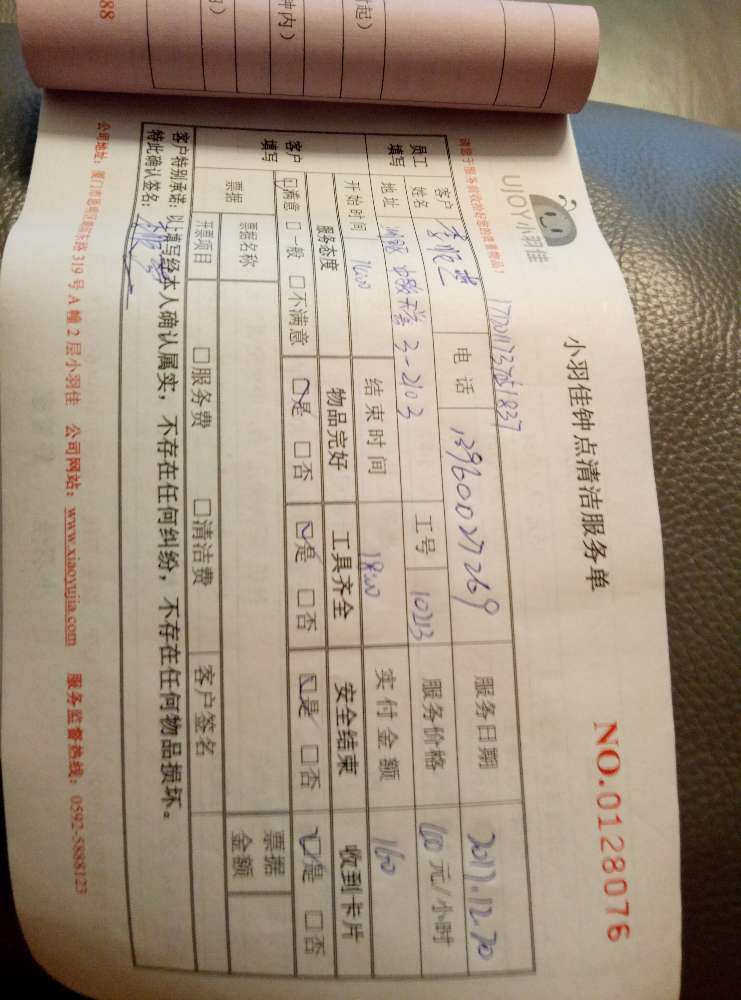 UJOY小羽佳
小羽佳钟点清洁服务单
NO.0128076
客户 电话 13960027269 服务日期 2017.12.30
员工填写 姓名 工号 10213 服务价格 元/小时
地址 3-2103 实付金额 160
开始时间 16:00 结束时间 18:00
客户填写 服务态度 物品完好 工具齐全 安全结束 收到卡片
☑满意 □一般 □不满意 ☑是 □否 ☑是 □否 ☑是 □否 ☑是 □否
票据 票据名称 票据金额
开票项目 □服务费 □清洁费 客户签名
客户特别承诺：以上填写经本人确认属实，不存在任何纠纷，不存在任何物品损坏。
特此确认签名：
319号A幢2层小羽佳 公司网站：www.xiaoyujia.com 服务监督热线：0592-5888123